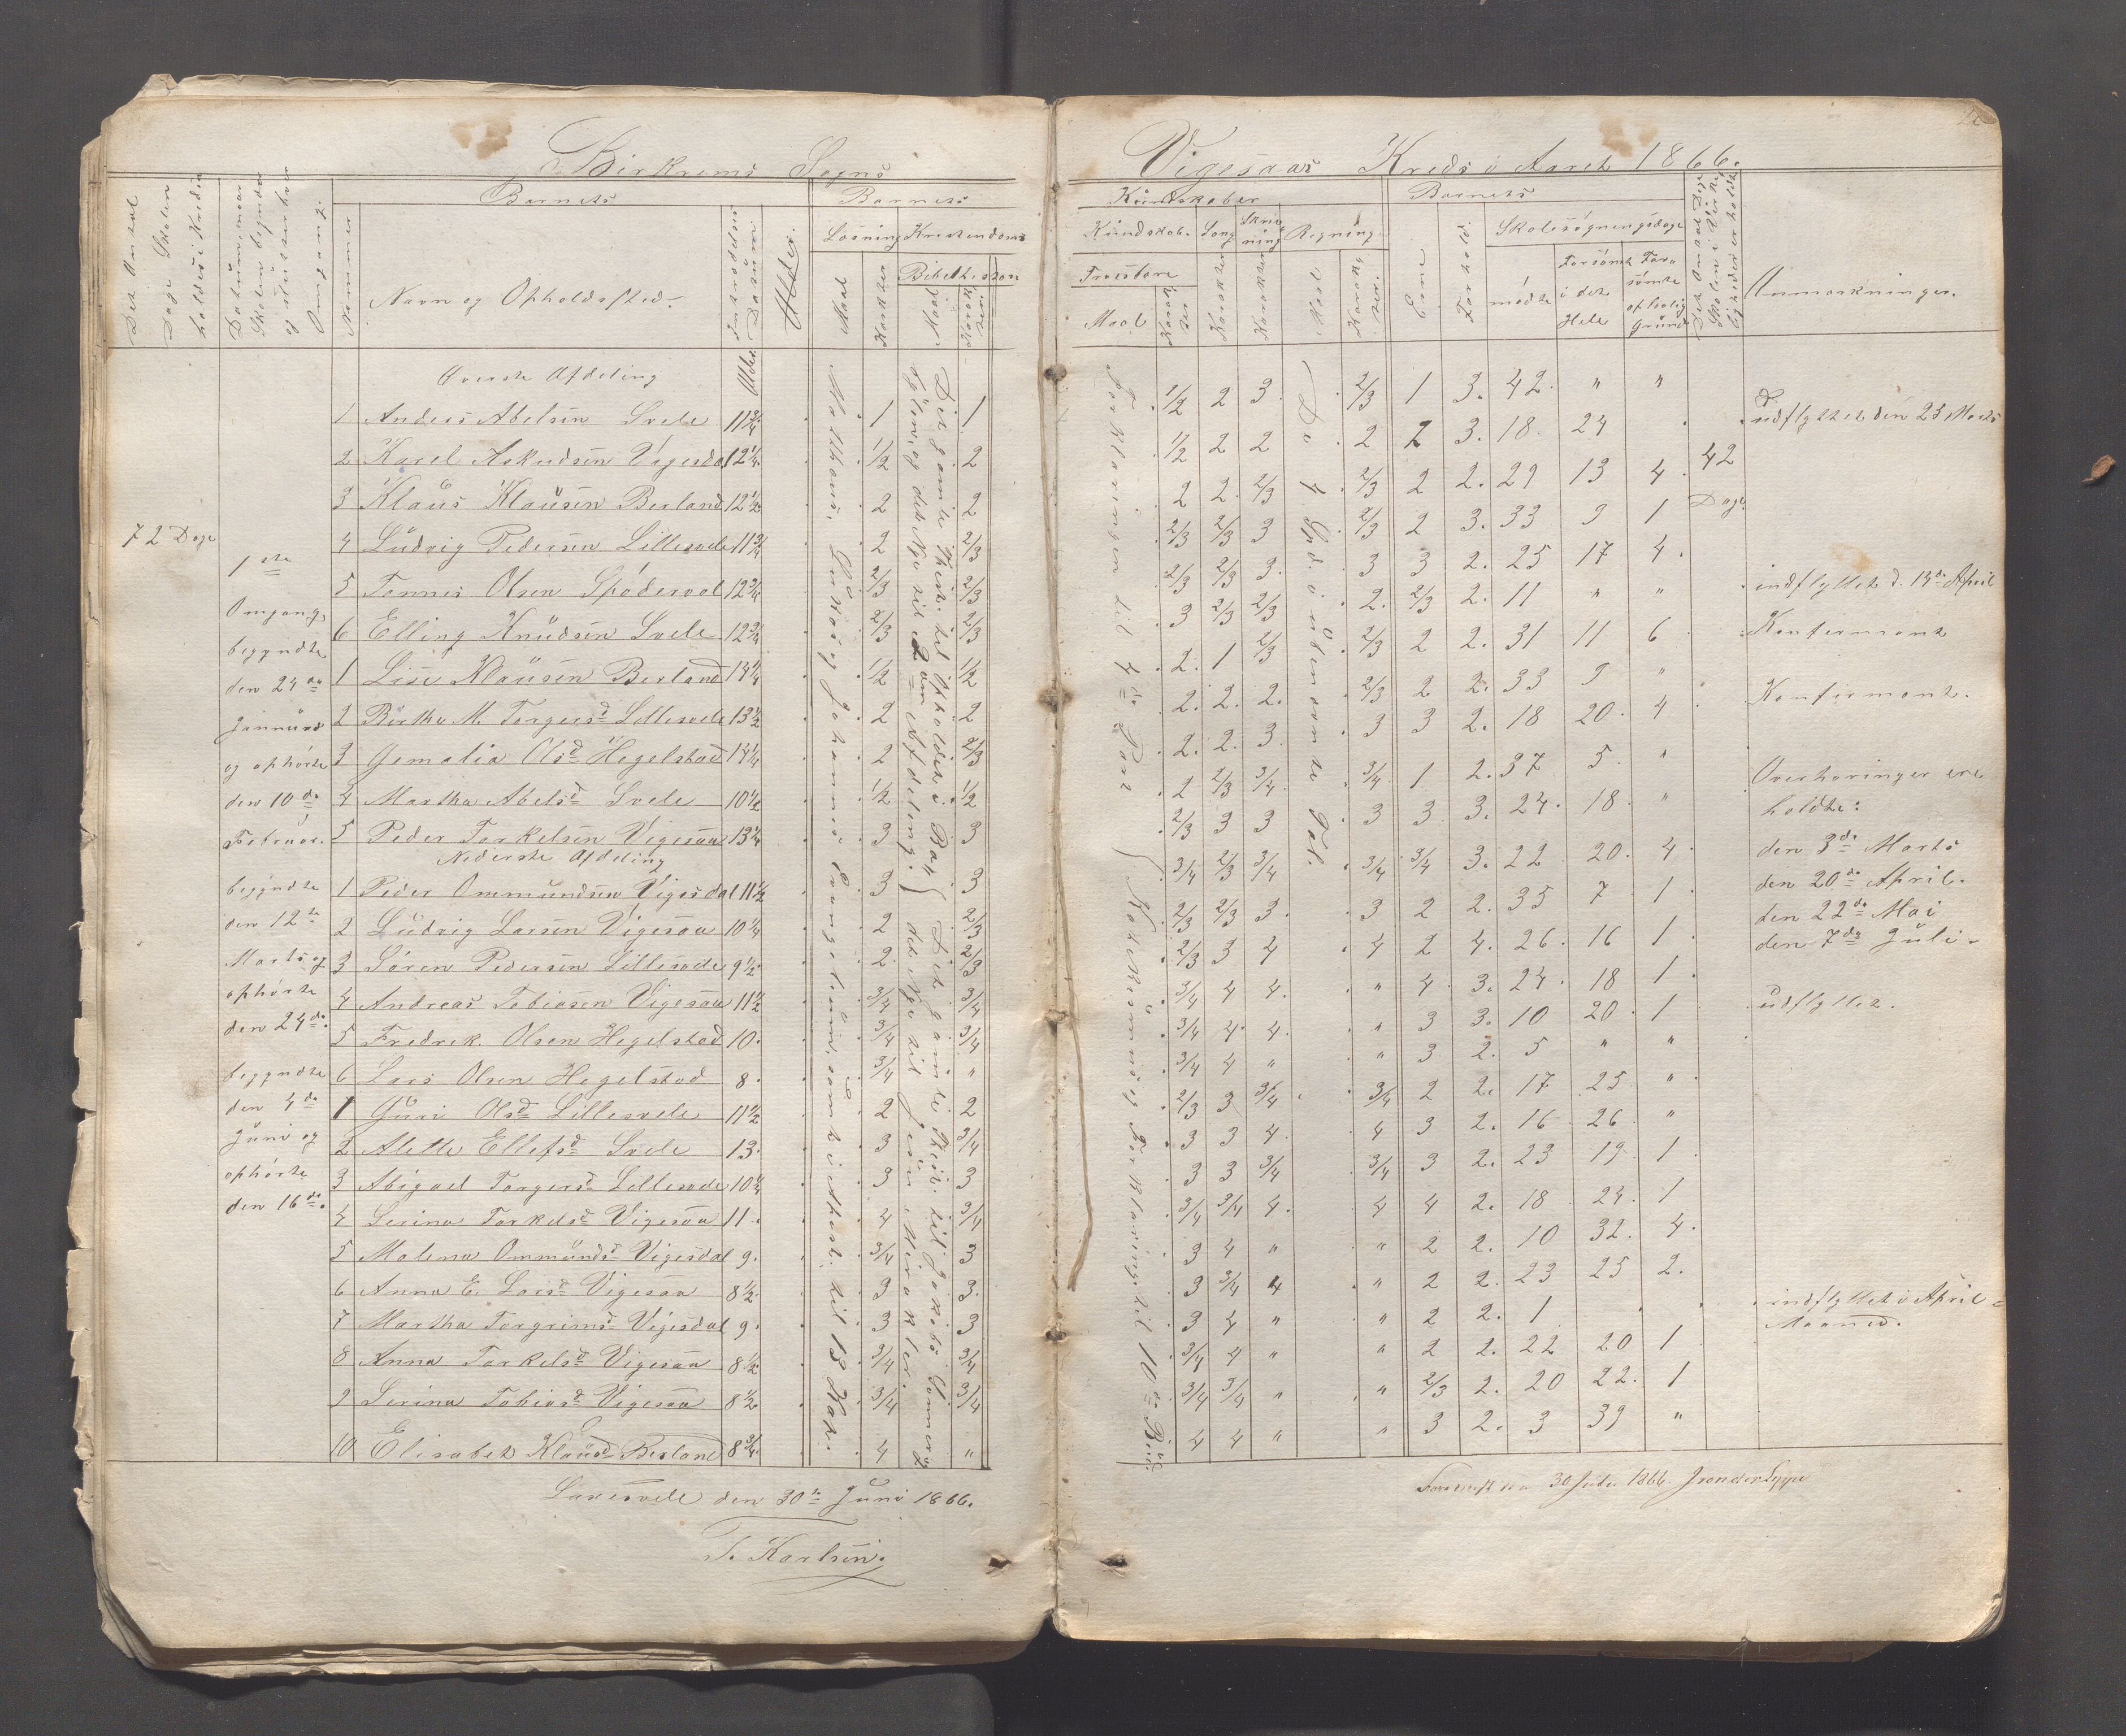 Birkrems Sogns Vigesaas Kreds i Aaret 1866.
Det Antal Dage Skolen holdes i Kredsen
Datum, naar Skolen begynder og slutter hver Omgang.
Nummer
Barnets
Navn og Opholdssted.
Alder.
Barnets Kundskaber
Læsning Kristendoms Kundskab. Sang Skrivning Regning.
Maal Karakter
Bibelhistorie
Troeslære
Maal Karakter
Barnets
Evne
Forhold.
Skolesøgningsdage
mødte
Forsømte i det Hele
Forsømte af lovlig Grund
Det Antal Dage Skolen i Virkeligheden er holdt
Anmærkninger.
72 Dage
1ste
Omgang,
begyndte
den 24de
Januar
og ophørte
den 10de
Februar.
begyndte
den 12te
Marts og
ophørte
den 24de.
begyndte
den 4de
Juni og
ophørte
den 16de.
Øverste Afdeling
1 Anders Abelsen Svele 11 3/4 1 1 1/2 2 3 2/3 1 3. 42. " "
2 Karel Askudsen Vigesdal 12 1/4 1/2 2 1/2 2 2 2 2 3. 18. 24 udflyttet den 23 Marts
3 Klaus Klausen Berland 12 1/2 2 2 2 2. 2/3 2/3 2 2. 29 13 4. 42 Dage
4 Ludvig Pedersen Lillesvele 11 3/4 2 2/3 2/3 2/3 3 2/3 2 3. 33 9 1
5 Tonnes Olsen Spødervol 12 3/4 2/3 2/3 2/3 2/3 3. 3 3 2. 25 17 4.
6 Elling Knudsen Svele 12 3/4 2/3 2/3 3 2/3 2/3 2. 2/3 2. 11 " " indflyttet d. 13de April
1 Lise Klausen Berland 14 1/4 1/2 1/2 2. 1 2/3 2/3 2 2. 31 11 6 Konfirmant
2 Birtha M. Torgersd Lillesvele 13 1/2 2 2 2. 2. 2. 2/3 2 2. 33 9 "
3 Gemalia Olsd Hegelstad 14 1/4 2 2/3 2. 2. 3. 3 3 2. 18 20. 4 Konfirmant.
4 Martha Abelsd Svele 10 1/2 1/2 1/2 2 2/3 3/4. 3/4. 1 2. 37 5. "
5 Peder Torkelsen Vigesaa 13 1/4 3 3 2/3 3 3 3 3 3. 24. 18. "
Nederste Afdeling
1 Peder Ommundsen Vigesdal 11 1/2 3 3 3/4 2/3 3/4 3/4 3/4 3. 22 20. 4.
2 Ludvig Larsen Vigesaa 10 1/4 2 2/3 2/3 2/3 3. 3 2 2. 35 7 1.
3 Søren Pedersen Lillesvele 9 1/2. 2. 2/3 2/3 3 4 4 2 4. 26. 16 1.
4 Andreas Tobiasen Vigesaa 11 1/2 3/4 3/4 3/4 4 4. " 4. 3. 24. 18 1.
5 Fredrek. Olsen Hegelstad 10. 3/4 3/4 3/4 4. 4. " 3 3. 10 20. 1 udflyttet.
6 Lars Olsen Hegelstad 8. 3/4 " 3/4 4 " " 3 2. 5 " "
1 Guri Olsd Lillesvele 11 1/2 2 2 2/3 3 3/4 3/4 2 2. 17 25 "
2 Alette Ellefsd Svele 13. 3 3/4 3 3 4. 4 3 2. 16 26. "
3 Abigael Torgersd Lillesvele 10 1/4 3 3 3 3 3/4 3/4 3 2. 23 19. 1
4 Serina Torkelsd Vigesaa 11. 4 3/4 3/4 3/4 4. 4 4 2. 18 24. 1
5 Malena Ommundsd Vigesdal 9. 3/4 3 3 4 " " 2 2. 10 32. 4.
6 Anna E. Larsd Vigesaa 8 1/2. 3 3. 3 3/4 4 " 2 2. 23 25 2.
7 Martha Torgrimsd Vigesdal 9. 3 3 3 4 " " 2 2. 1 indflyttet i April Maaned.
8 Anna Torkelsd Vigesaa 8 1/2. 3/4 3/4 3/4 4 " " 2 2. 22 20 1
9 Serina Tobiasd Vigesaa 8 1/2 3/4 3/4 3/4 3/4 " " 2/3 2. 20 22. 1
10 Elisabet Klausd Berland 8 3/4. 4 " 4 4 " " 3 2. 3 39 "
Overhøringer ere
holdte:
den 3de Marts
den 20de April.
den 22de Mai
den 7de Juli.
Matthæus, Lukas og Johannes Evangelium, samt Apost. til 13 Kap.
Det gamle Thest. til Opholdet i Babylon, og det Nye til 2den Afdeling.
Det gamle Thest. til Jakobs Sønner og det Nye til Jesu Mirakler.
Forklaringen til 4de Part
Katekismus og Forklaring. til 10de Bud.
De 4 Spd. i ubenævnte Tal.
Lavesvele den 30te Juni 1866.
T. Karlsen.
30 Juli 1866.